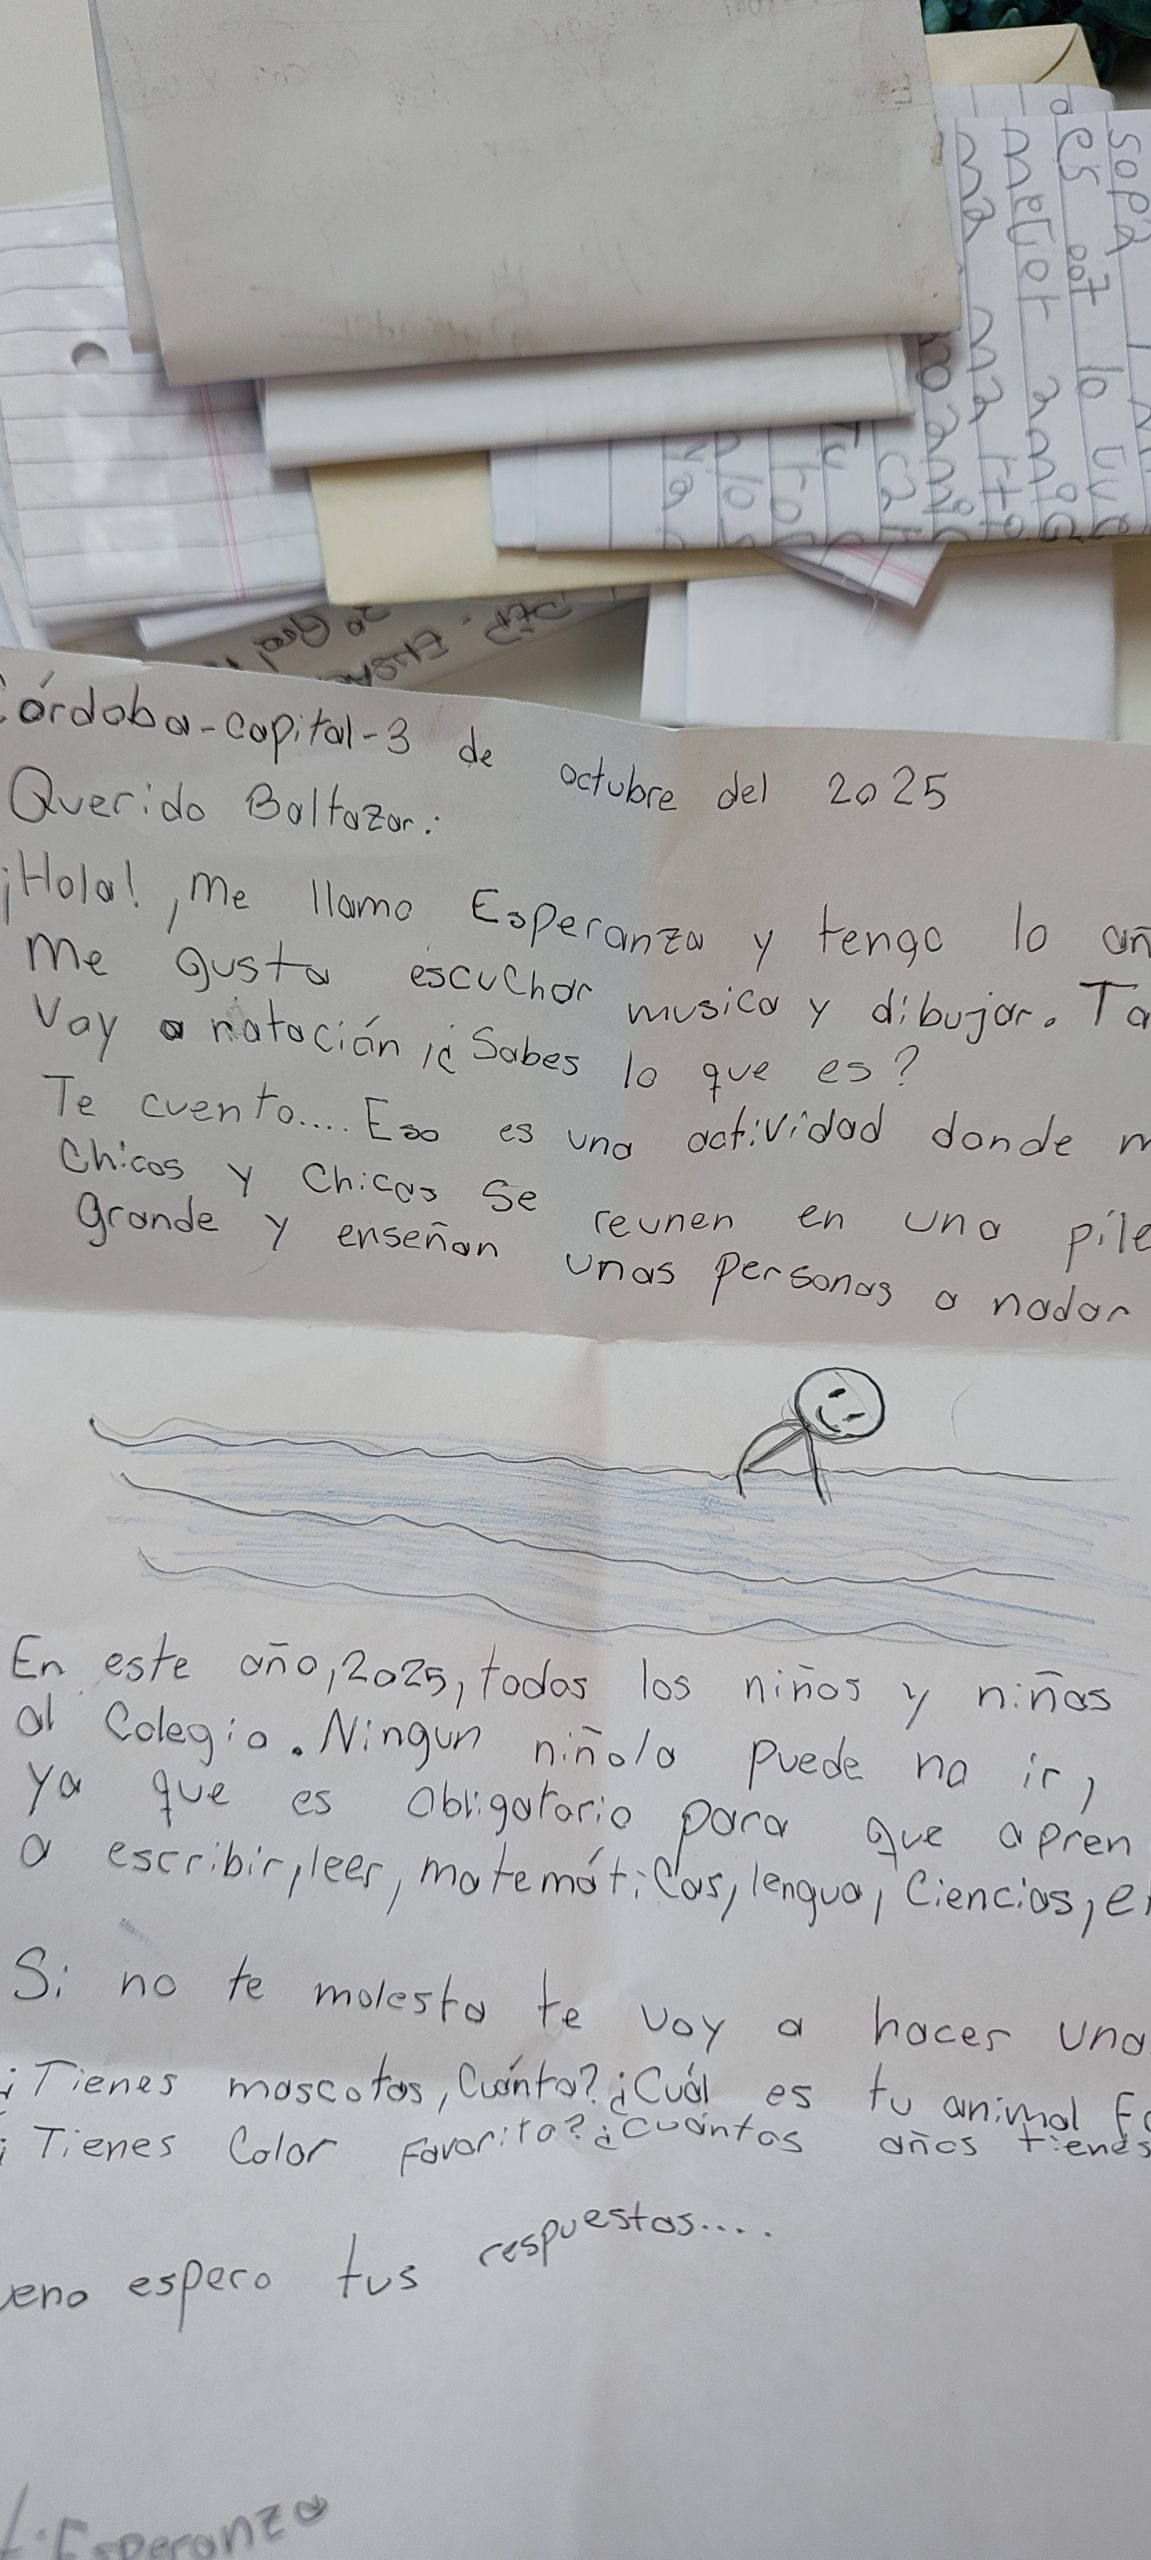 sopa
es por lo que
metior amig
Córdoba-Capital-3 de octubre del 2025
Querido Baltazar:
¡Hola!, Me llamo Esperanza y tengo 10 añ
Me gusta escuchar musica y dibujar. Ta
Voy a natación ¡¿Sabes lo que es?
Te cuento.... Eso es una actividad donde m
Chicos y Chicas se reunen en una pile
grande y enseñan unas personas a nadar
En este año, 2025, todos los niños y niñas
al Colegio. Ningun niño/a puede no ir,
ya que es obligatorio para que apren
a escribir, leer, matemáticas, lengua, Ciencias, e
Si no te molesta te voy a hacer una
¿Tienes mascotas, Cuánta? ¿Cuál es tu animal Fa
¿Tienes Color Favorito? ¿Cuántos años tienes
ueno espero tus respuestas....
Esperanza